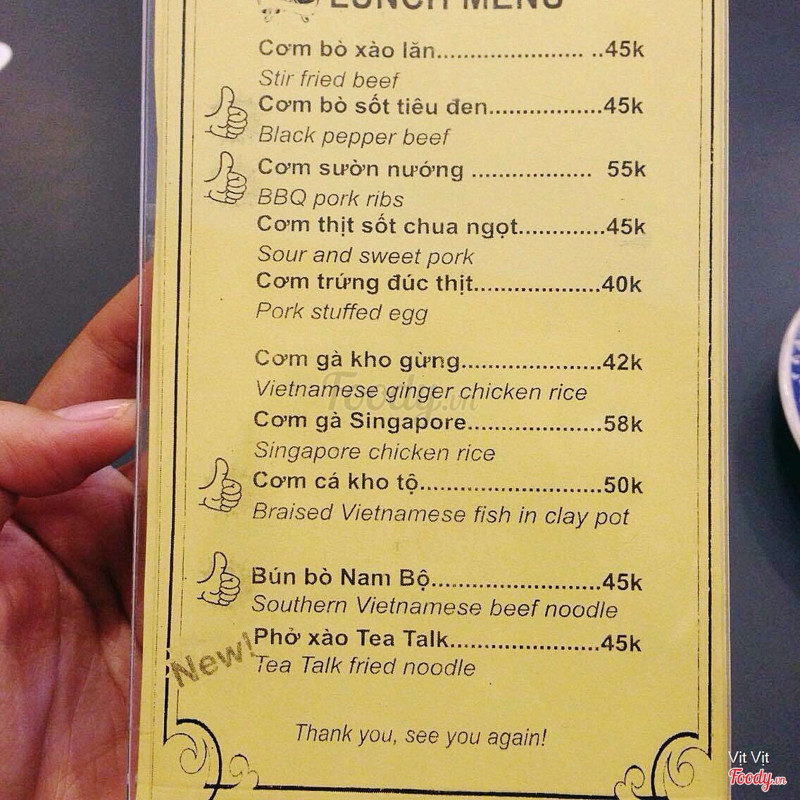 LUNCH MENU
Cơm bò xào lăn...................... ..45k
Stir fried beef
Cơm bò sốt tiêu đen.................45k
Black pepper beef
Cơm sườn nướng .................. 55k
BBQ pork ribs
Cơm thịt sốt chua ngọt.............45k
Sour and sweet pork
Cơm trứng đúc thịt...................40k
Pork stuffed egg
Cơm gà kho gừng.....................42k
Vietnamese ginger chicken rice
Cơm gà Singapore....................58k
Singapore chicken rice
Cơm cá kho tộ...........................50k
Braised Vietnamese fish in clay pot
Bún bò Nam Bộ.........................45k
Southern Vietnamese beef noodle
New! Phở xào Tea Talk......................45k
Tea Talk fried noodle
Thank you, see you again!
Foody.vn
Vịt Vịt
Foody.vn